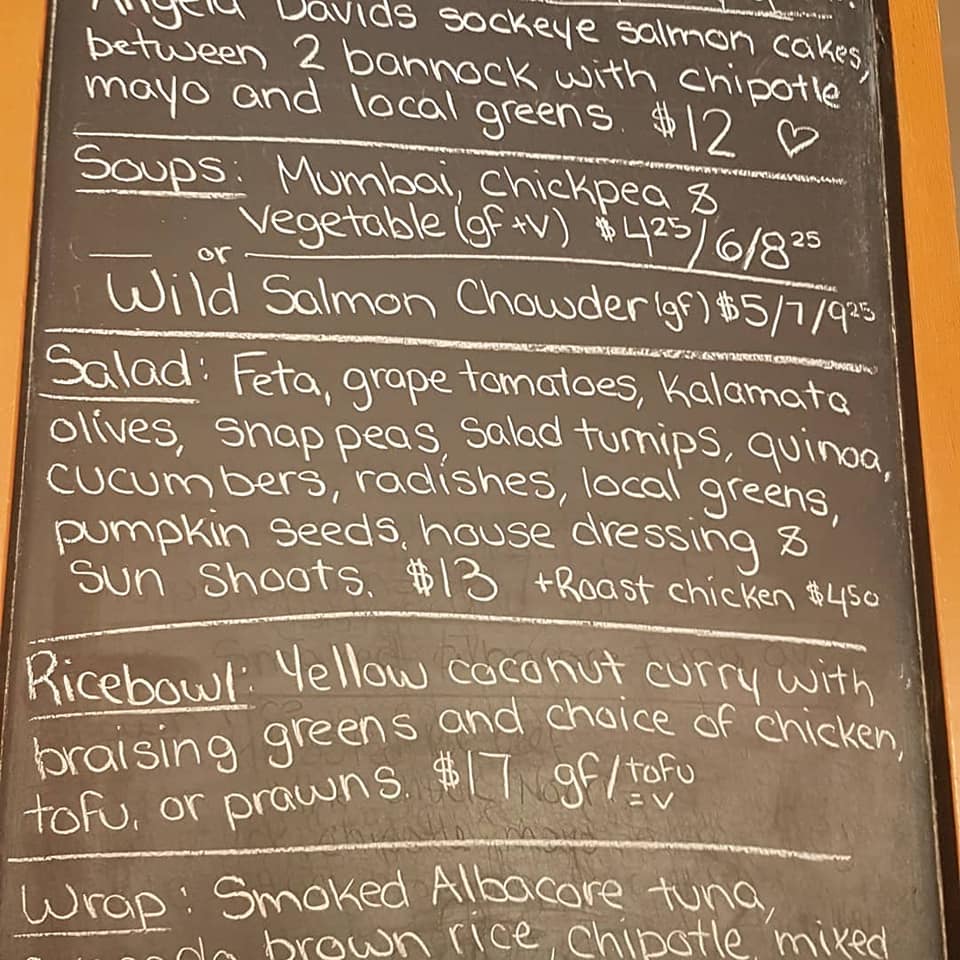 Angela Davids sockeye salmon cakes,
between 2 bannock with chipotle
mayo and local greens. $12 ♡
Soups: Mumbai, Chickpea &
Vegetable (gf+v) $4²⁵/6/8²⁵
or
Wild Salmon Chowder (gf) $5/7/9²⁵
Salad: Feta, grape tomatoes, Kalamata
olives, snap peas, salad turnips, quinoa,
cucumbers, radishes, local greens,
pumpkin seeds, house dressing &
sun shoots. $13 +Roast chicken $4⁵⁰
Ricebowl: Yellow coconut curry with
braising greens and choice of chicken,
tofu, or prawns. $17 gf/tofu
= v
Wrap: Smoked Albacore tuna,
brown rice, chipotle, mixed